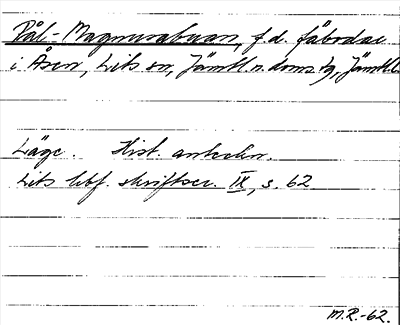 Pål-Magnusabuan, f.d. fäbodar
i Åsen, Lits sn, Jämtl. n. doms tg, Jämtl. l.
Läge. Hist. anteckn.
Lits hbf. skriftser. IX, s. 62
M.R.-62.